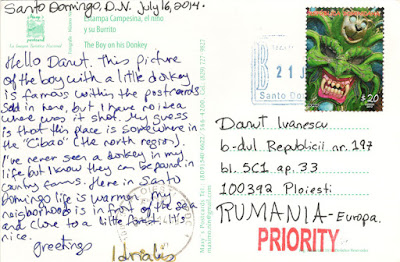 Santo Domingo, D.N. July 16, 2014.
Estampa Campesina, el niño
y su Burrito
The Boy on his Donkey
Hello Danut. This picture
of the boy with a little donkey
is famous within the postcards
sold in here, but I have no idea
where was it shot. My guess
is that this place is somewhere in
the "Cibao" (the north region).
I've never seen a donkey in my
life but I know they can be found in
country farms. Here in Santo
Domingo life is warmer, my
neighborhood is in front of the sea
and close to a little forest. It's
nice.
Greetings
Idrialis
21 J
Santo Do
$20
Danut Ivanescu
b-dul. Republicii nr. 197
bl. 5C1 ap. 33
100392 Ploiesti
RUMANIA-Europa.
PRIORITY